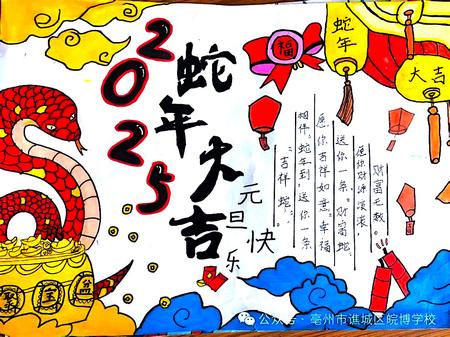 2025
蛇年大吉
元旦快乐
福
蛇年
大吉
财富无数。
愿你财源滚滚，
送你一条“财富蛇”，
愿你吉祥如意。幸福
相伴。蛇年到，送你一条
“吉祥蛇”。
聚宝盆
公众号·亳州市谯城区皖博学校